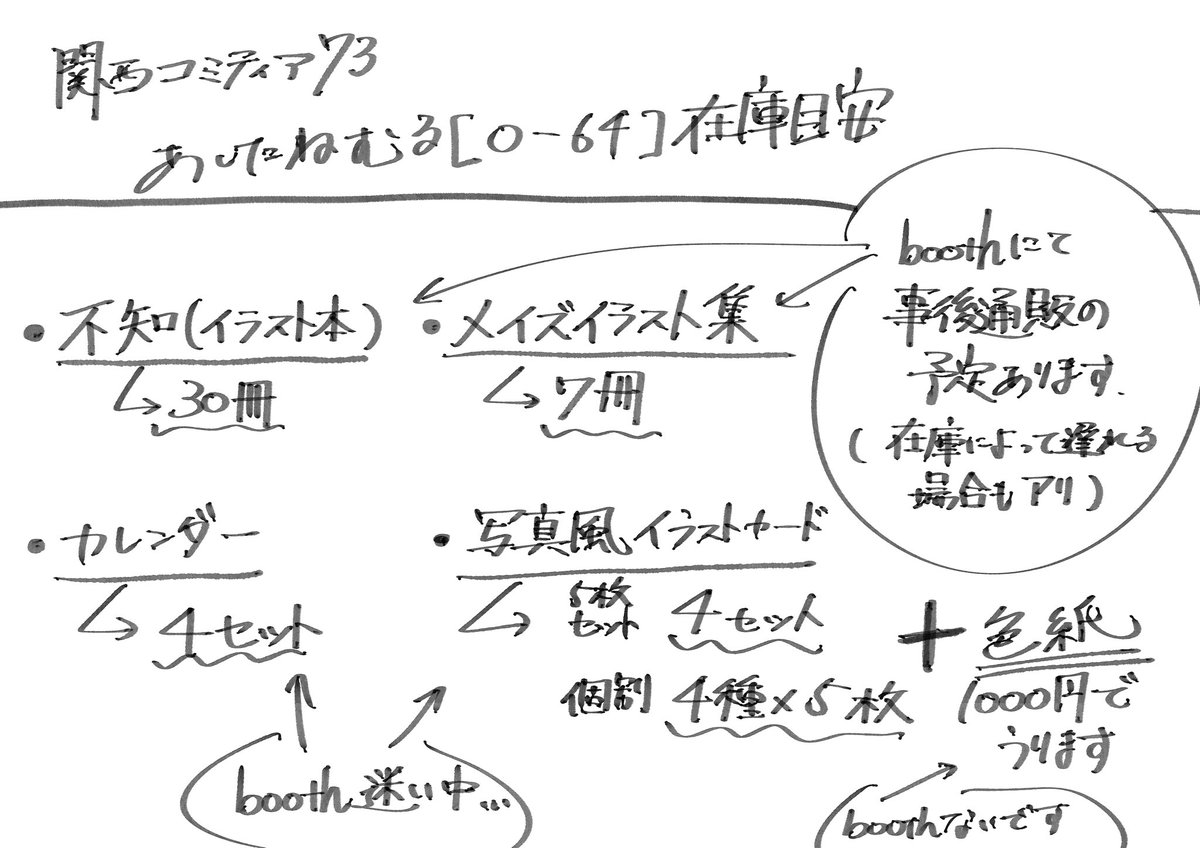 関西コミティア73
あしたねむる[O-64]在庫目安
boothにて
事後通販の
予定あります.
(在庫によって遅れる
場合もアリ)
・不知(イラスト本)
↳30冊
・メイズイラスト集
↳7冊
・カレンダー
↳4セット
・写真風イラストカード
↳5枚セット 4セット
個別 4種×5枚
+色紙
1000円で
うります
booth迷い中...
boothないです